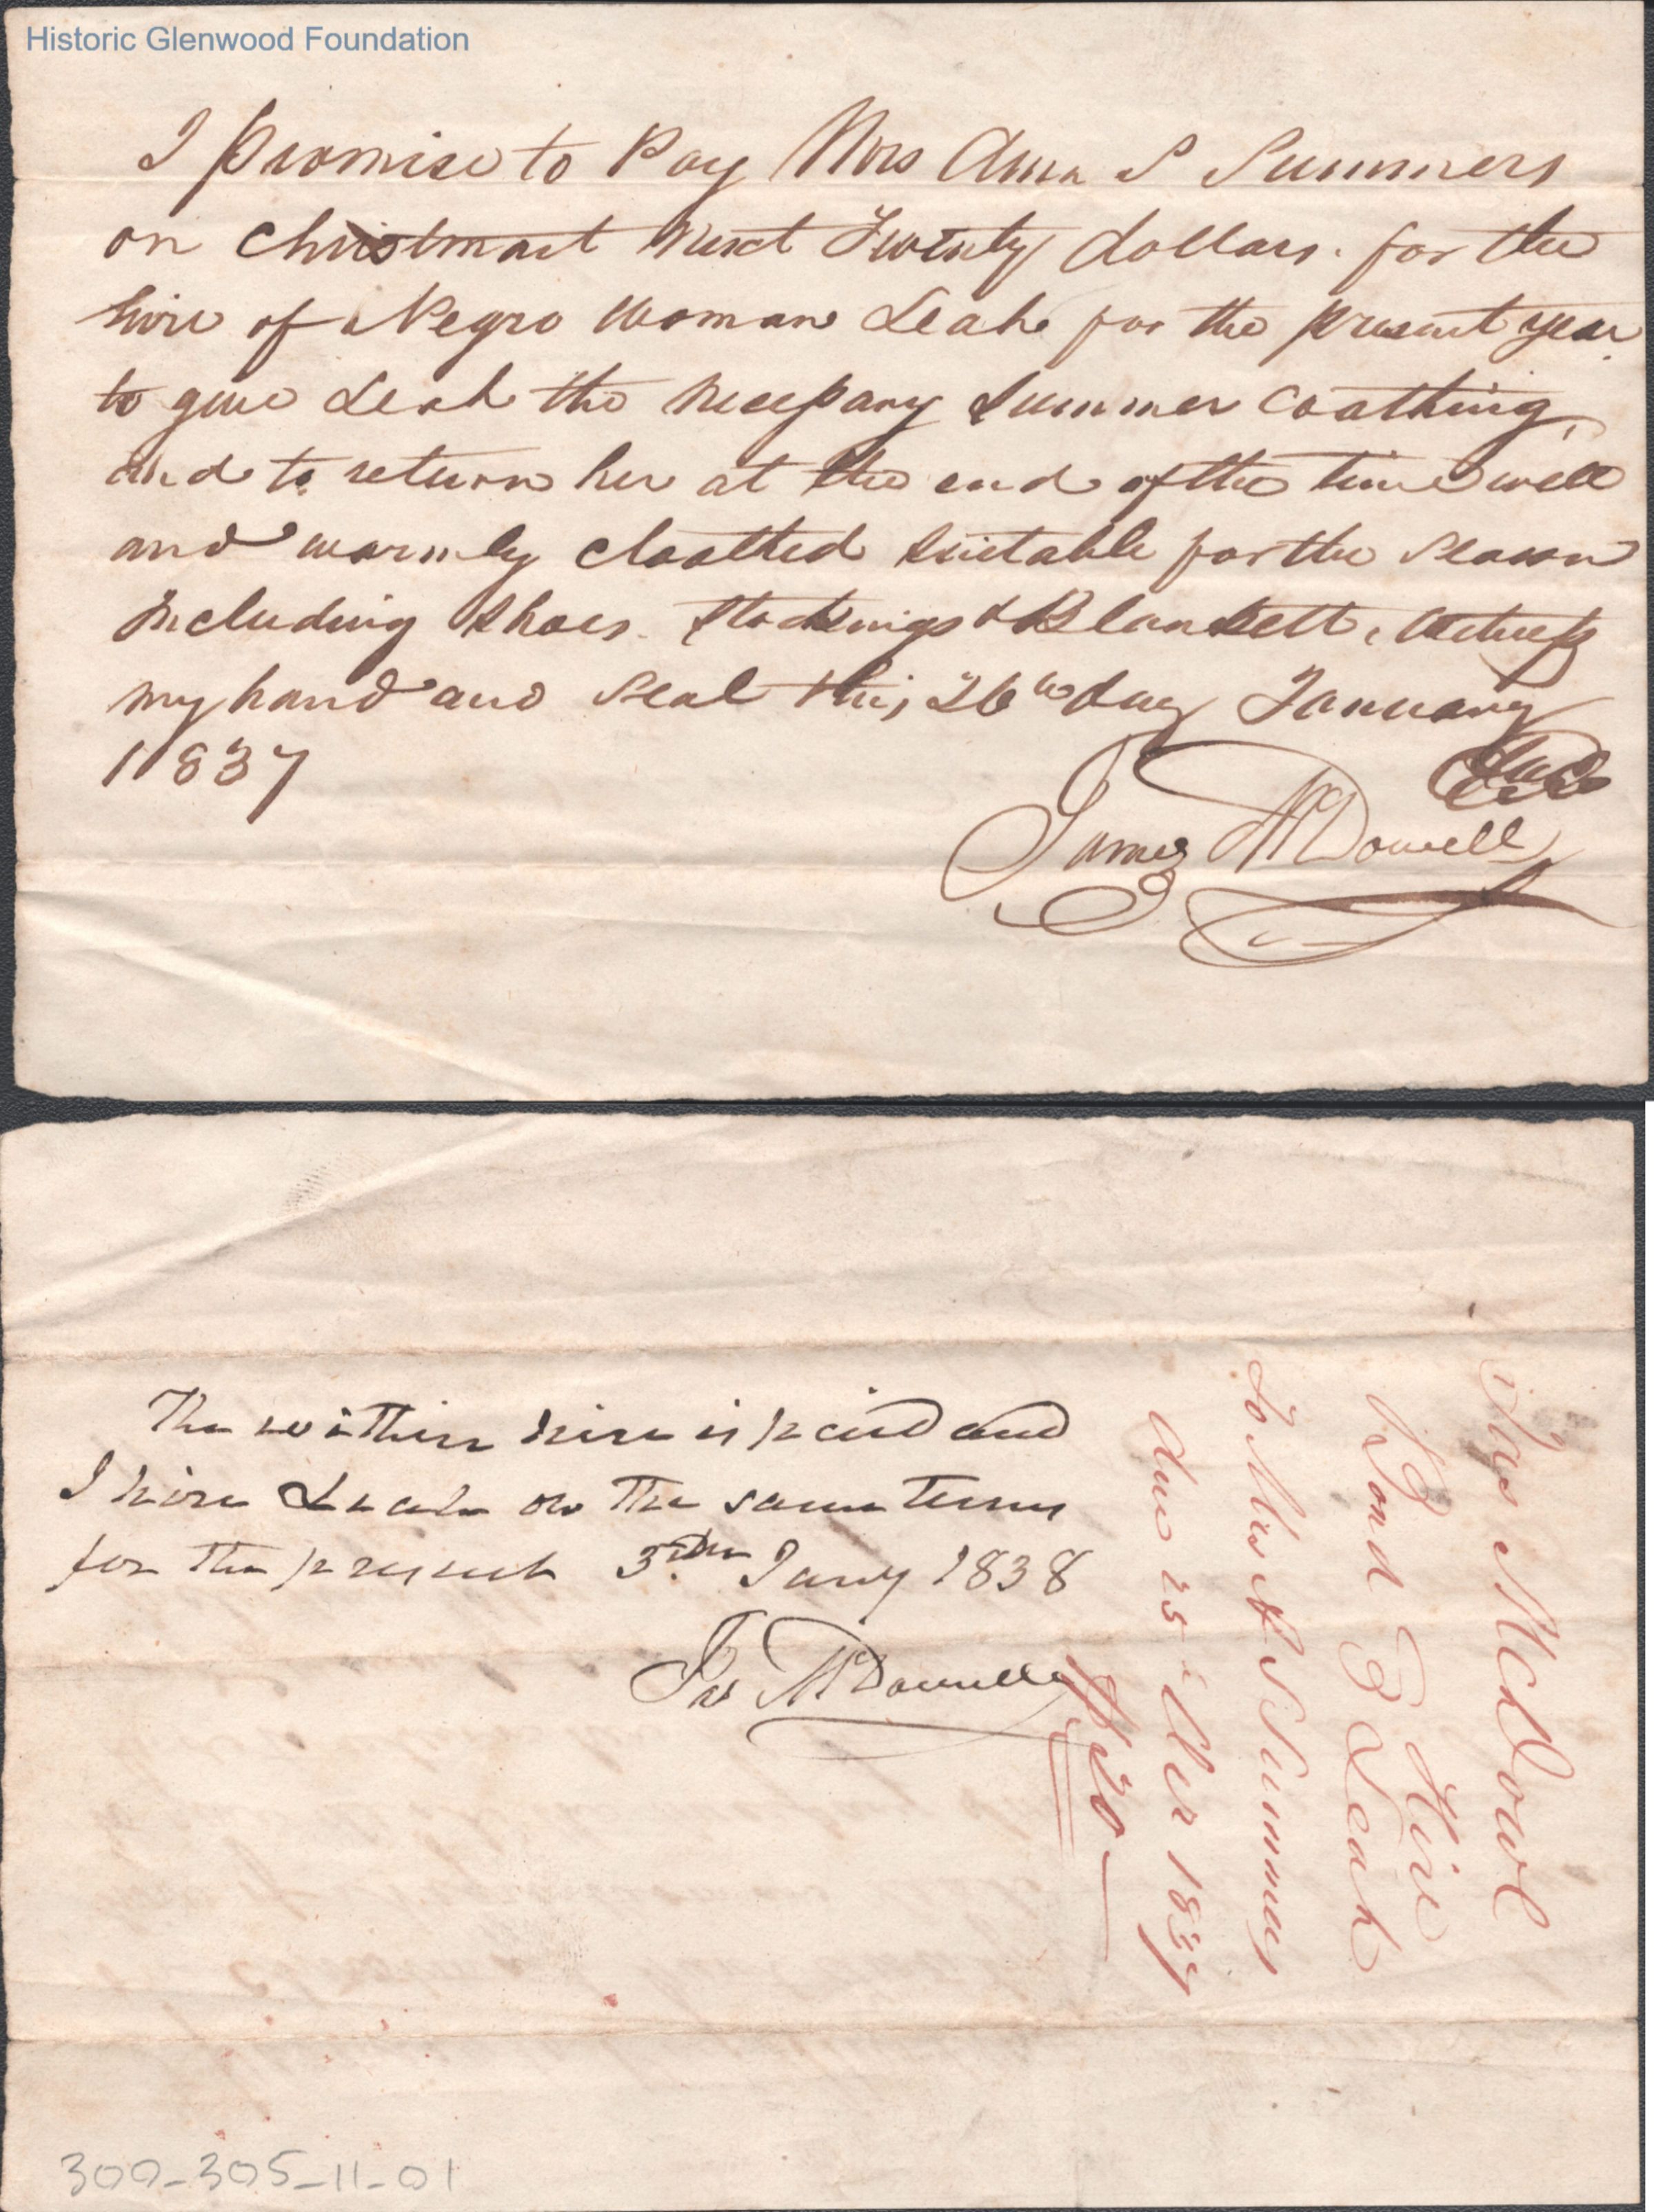 Historic Glenwood Foundation
I promise to Pay Mrs Anna S Summers
on Christmast next Twenty dollars. for the
hire of Negro Woman Leah for the present year
to give Leah the necessary summer Coathing,
and to return her at the end of the time well
and warmly cloathed suitable for the season
Including shoes. stockings & Blankett, Witness
my hand and seal this 26th day January
1837
Seal
James McDowell
The within hire is paid and
I hire Leah on the same terms
for the present 3rd Jany 1838
Jas McDowell
Jas McDowel
Bond } Hire
} Leah
To Mrs A S Summers
due 25 Decr 1837
$20
300-305-11-01